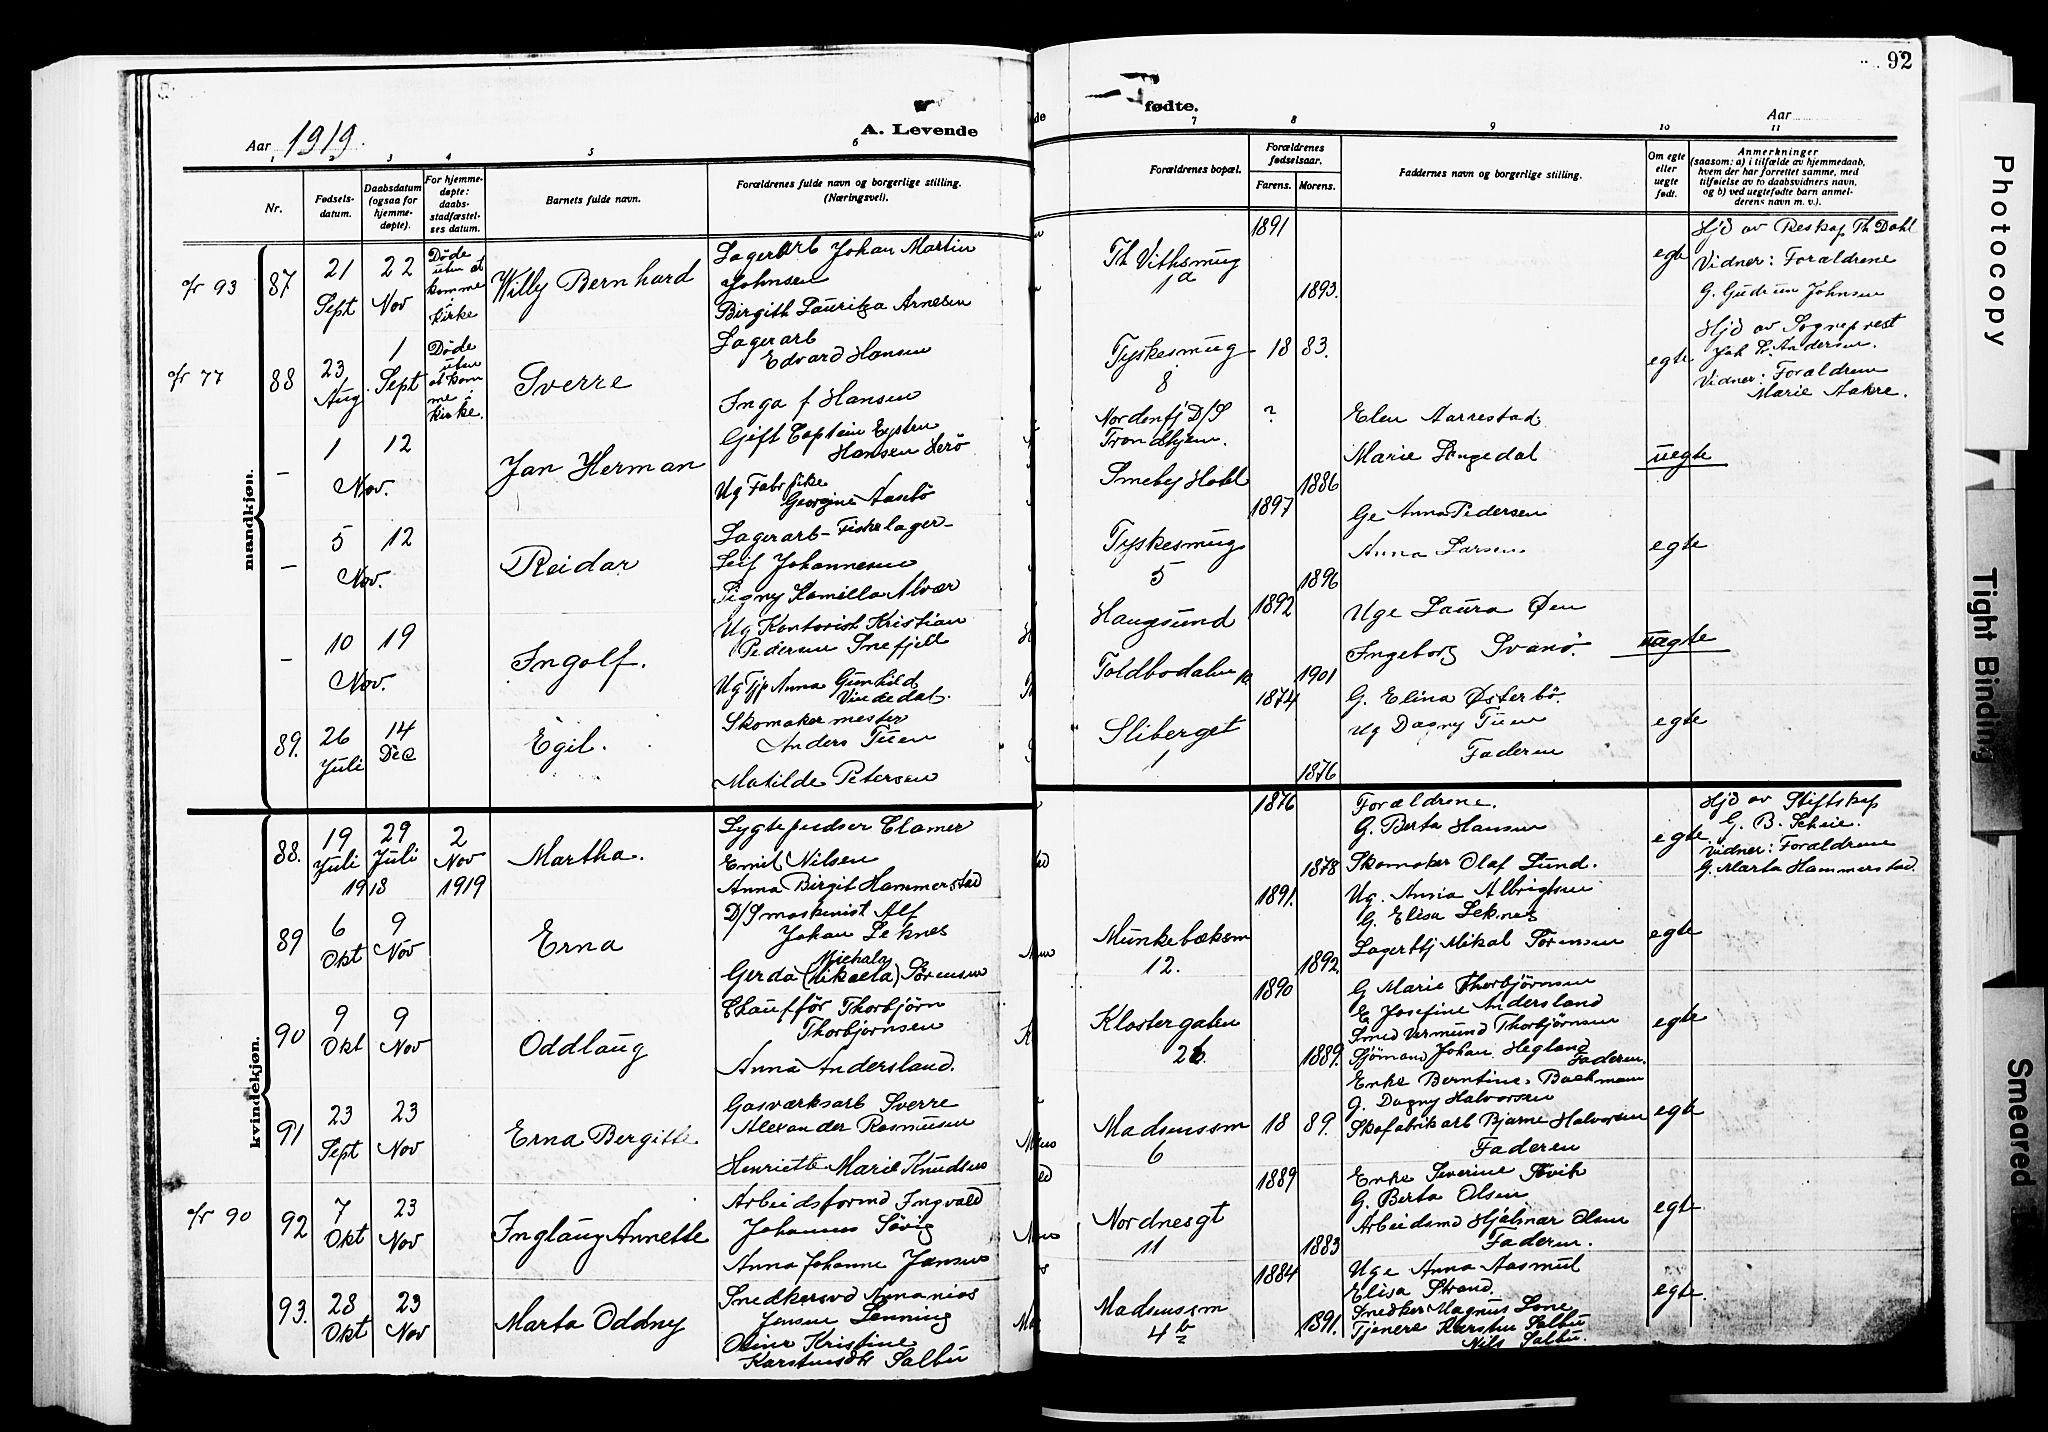 92
Aar 1919.
A. Levende
fødte.
Aar
1
2
3
4
5
6
7
8
9
10
11
Nr.
Fødsels-
datum.
Daabsdatum
(ogsaa for
hjemme-
døpte).
For hjemme-
døpte:
daabs-
stadfæstel-
ses datum.
Barnets fulde navn.
Forældrenes fulde navn og borgerlige stilling.
(Næringsvei).
Forældrenes bopæl.
Forældrenes
fødselsaar.
Farens. Morens.
Faddernes navn og borgerlige stilling.
Om egte
eller
uegte
født.
Anmerkninger
(saasom: a) i tilfælde av hjemmedaab,
hvem der har forrettet samme, med
tilføielse av to daabsvidners navn,
og b) ved uegtefødte barn anmel-
derens navn m. v.).
mandkjøn.
o/r 93
87
21
Sept
22
Nov
Døde
uten at
komme
i
kirke
Willy Bernhard
Lagerarb Johan Martin
Johnsen
Birgith Lauritza Arnesen
Th Vithsmug
1a
1891
1893.
egte
Hjd av Reskap Th Dahl
Vidner: Forældrene
G. Gudrun Johnsen
o/r 77
88
23
Aug
1
Sept
Døde
uten
at kom
me i
kirke.
Sverre
Lagerarb
Edvard Hansen
Inga f Hansen
Tyskesmug
8
18 83.
egte
Hjd av Sogneprest
Joh L. Andersen.
Vidner: Forældrene
Marie Aakre.
–
1
Nov.
12
Jan Herman
Gift Captein Eysten
Hansen Herö
Ug Fabr pike
Georgine Aasebö
Nordenfj D/S
Trondhjem.
Smeby Hotel
?
1886
Elen Aarrestad.
Marie Lngedal
uegte
–
5
Nov.
12
Reidar
Lagerarb – Fiskelager –
Leif Johannesen
Signy Kamilla Alvær
Tyskesmug
5
1897
1896
Ge Anna Pedersen
Anna Larsen.
egte
–
10
Nov.
19
Ingolf.
Ug Kontorist Kristian
Pedersen Snefjell
Ug Tjp Anna Gunhild
Vindedal.
Haugesund
Toldbodalm 10
1892
1901
Uge Laura Øen
Ingeborg Svanö.
uegte
89.
26
Juli
14
Dec
Egil.
Skomaker mester
Anders Tuen
Matilde Petersen
Sliberget
1
1874
1876
G. Elina Østerbö.
Ug Dagny Tuen
Faderen
egte
kvindekjøn.
88.
19
Juli
1918
29
Juli
2
Nov
1919
Martha.
Lygtepudser Clamer
Emil Nilsen
Anna Birgit Hammerstad
1876
1878
Forældrene.
G. Berta Hansen
Skomaker Olaf Lund.
egte
Hjd av Stiftskap
G. B. Scheie.
Vidner: Forældrene
G. Marta Hammerstad.
89
6
Okt
9
Nov
Erna
D/S maskinist Alf
Johan Leknes
Michala
Gerda (Mikaela) Sörensen
Munkebæksm
12.
1891.
1892.
Ug. Anna Albrigtsen
G. Elisa Leknes
Lagerbtj Mikal Sörensen
egte
90
9
Okt
9
Nov
Oddlaug
Chauffför Thorbjörn
Thorbjornsen
Anna Andersland.
Klostergaten
26
1890
1889.
G Marie Thorbjörnsen
E Josefine Andersland
Smed Vermund Thorbjörnsen
Sjömand Johan Hegland
Faderen.
egte
91
23
Sept
23
Nov
Erna Bergitte
Gasværksarb Sverre
Alexander Rasmusen
Henriette Marie Knudsen
Madsenssm
6
18 89.
Enke Berntine Backmann
G. Dagny Halvorsen
Skofabrikarb Bjarne Halvorsen
Faderen
egte
o/r 90
92
7
Okt
23
Nov
Inglaug Annette
Arbeidsformd Ingvald
Johannes Sövig
Anna Johanne Jansen
Nordnesgt
11
1889
1883
Enke Severine Sovik
G. Berta Olsen
Arbeidsmd Hjalmar Olsen
Faderen.
egte
93.
28
Okt
23
Nov
Marta Oddny
Snedkersvd Annanias
Jensen Lenning
Oline Kristine
Karstensdt Salbu
Madsenssm
4 b
1884
1891.
Uge Anna Aasmul
Elisa Strand.
Snedker Magnus Lone
Tjenere Karsten Salbu
Nils Salbu.
egte.
Photocopy
Tight Binding
Smeared